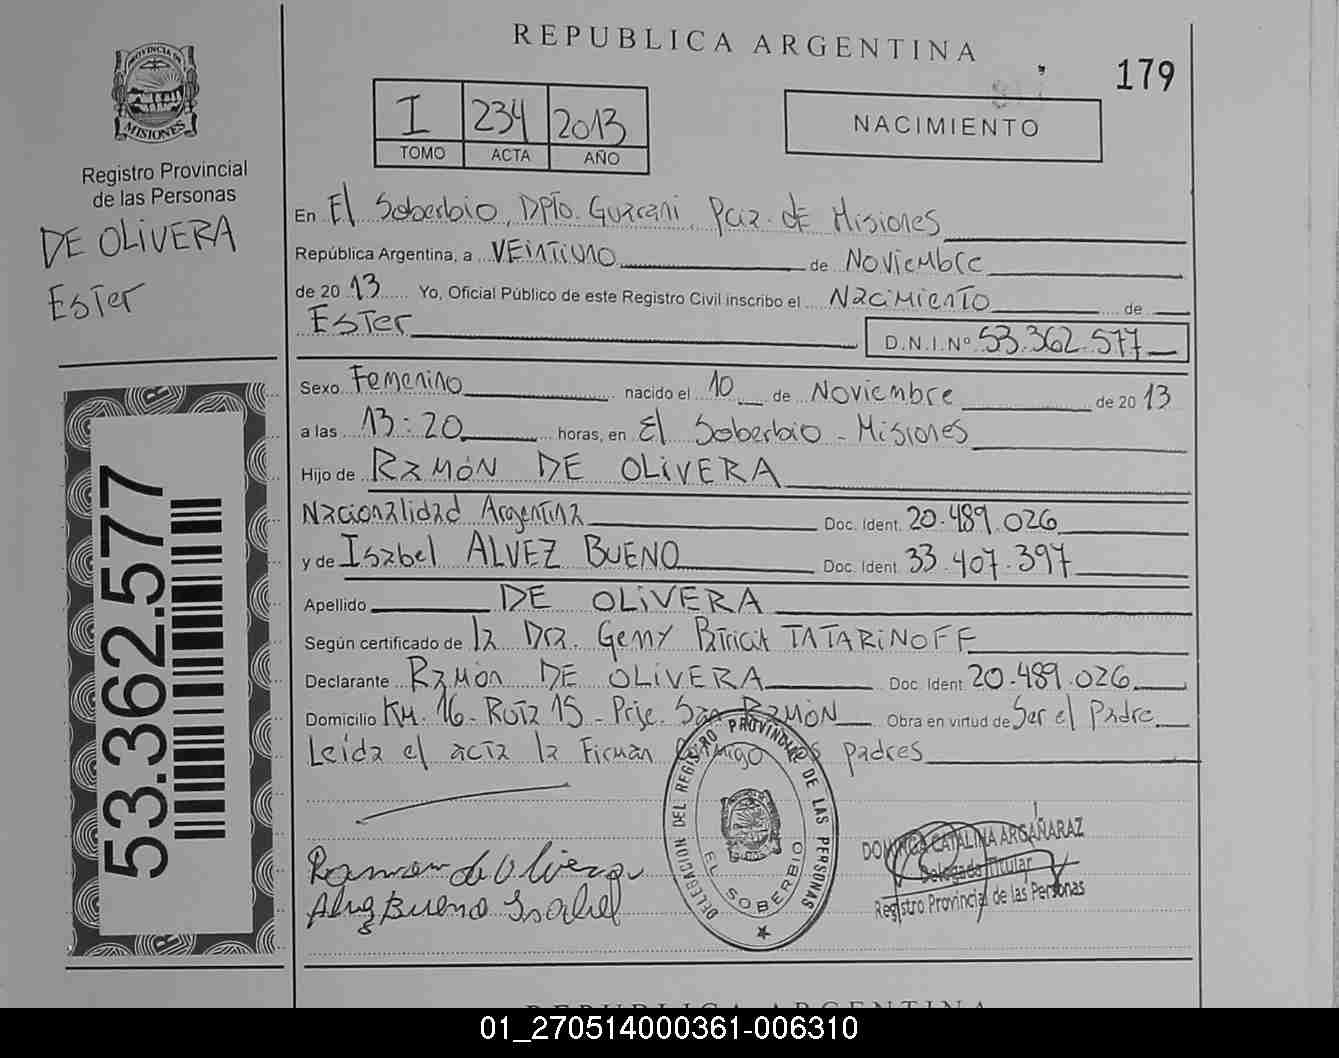 REPUBLICA ARGENTINA
179
PROVINCIA DE
MISIONES
Registro Provincial
de las Personas
DE OLIVERA
Ester
53.362.577
I 234 2013
TOMO ACTA AÑO
NACIMIENTO
En El Soberbio, DPTo. Guarani, Pcia. de Misiones
República Argentina, a VEINTIUNO de Noviembre
de 20 13 Yo, Oficial Público de este Registro Civil inscribo el Nacimiento de
Ester D.N.I.Nº 53.362.577
Sexo Femenino nacido el 10 de Noviembre de 20 13
a las 13:20 horas, en El Soberbio - Misiones
Hijo de RAMÓN DE OLIVERA
Nacionalidad Argentina Doc. Ident. 20.489.026
y de Isabel ALVEZ BUENO Doc. Ident. 33.407.397
Apellido DE OLIVERA
Según certificado de la Dra. Genny Patricia TATARINOFF
Declarante Ramón DE OLIVERA Doc. Ident. 20.489.026
Domicilio KM. 16 - Ruta 15 - Prje. San RAMÓN Obra en virtud de Ser el Padre
Leída el acta la Firman Conmigo los padres
Ramon de Olivera
Alvez Bueno Isabel
DELEGACION DEL REGISTRO PROVINCIAL DE LAS PERSONAS
EL SOBERBIO
DOMINGA CATALINA ARGAÑARAZ
Delegada Titular
Registro Provincial de las Personas
REPUBLICA ARGENTINA
01_270514000361-006310